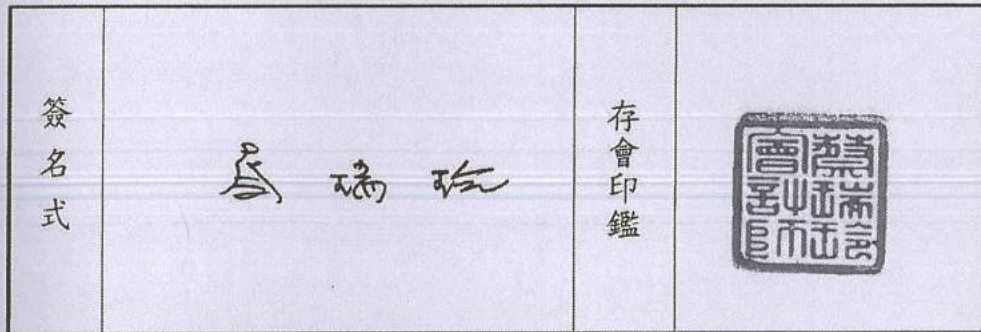 簽名式
蔡瑞玲
存會印鑑
蔡瑞玲
會計師印